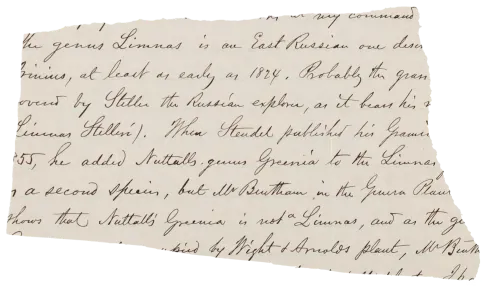 my command
the genus Limnas is an East Russian one desc
rinius, at least as early as 1824. Probably the gras
overed by Steller the Russian explorer, as it bears his
Limnas Stelleri). When Steudel published his Grami
855, he added Nuttalls genus Greenia to the Limnas
a second species, but Mr Bentham in the Genera Plan
shows that Nuttall's Greenia is not a Limnas, and as the ge
pied by Wight & Arnolds plant, Mr Benth